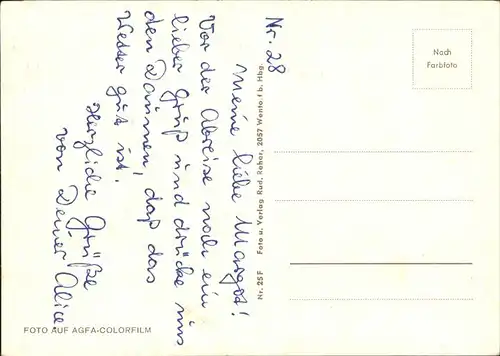 Nr. 28
Meine liebe Margot!
Vor der Abreise noch ein
lieber Gruß und drücke uns
den Daumen, daß das
Wetter gut ist.
Herzliche Grüße
von Deiner Alice.
Nach
Farbfoto
Nr. 25 F Foto u. Verlag Rud. Reher, 2057 Wentorf b. Hbg.
FOTO AUF AGFA-COLORFILM